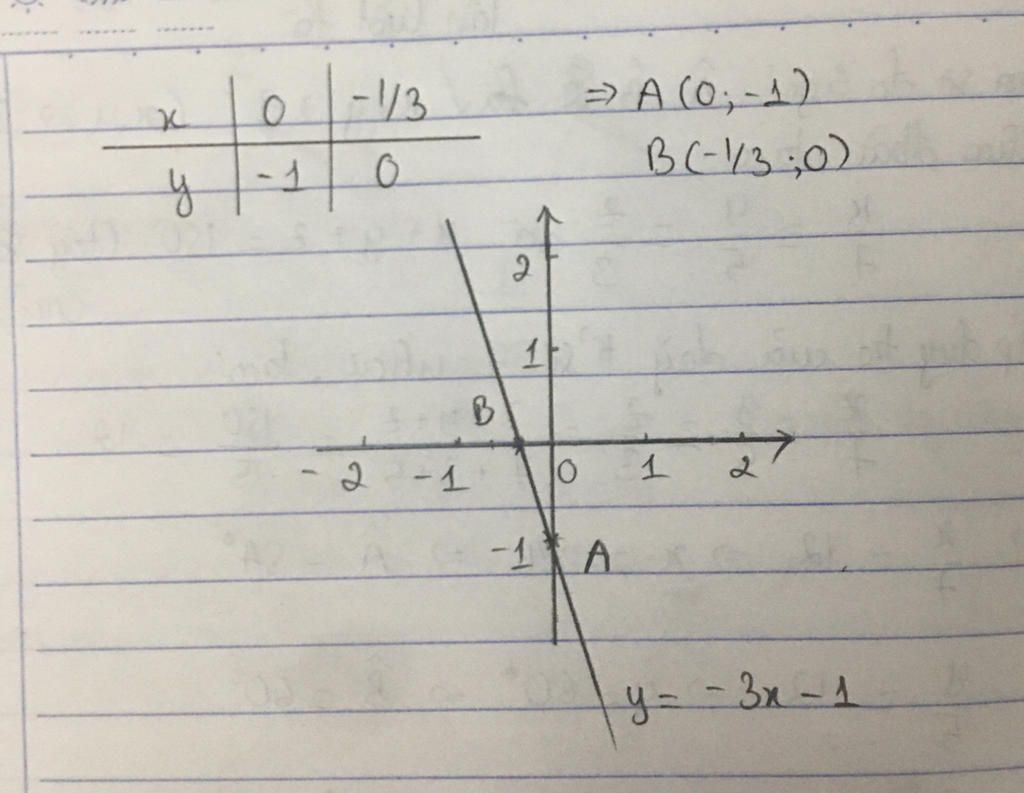 x | 0 | -1/3 ⇒ A (0; -1)
y | -1 | 0 B (-1/3 ; 0)
2
1
B
-2 -1 0 1 2
-1 A
y = -3x - 1